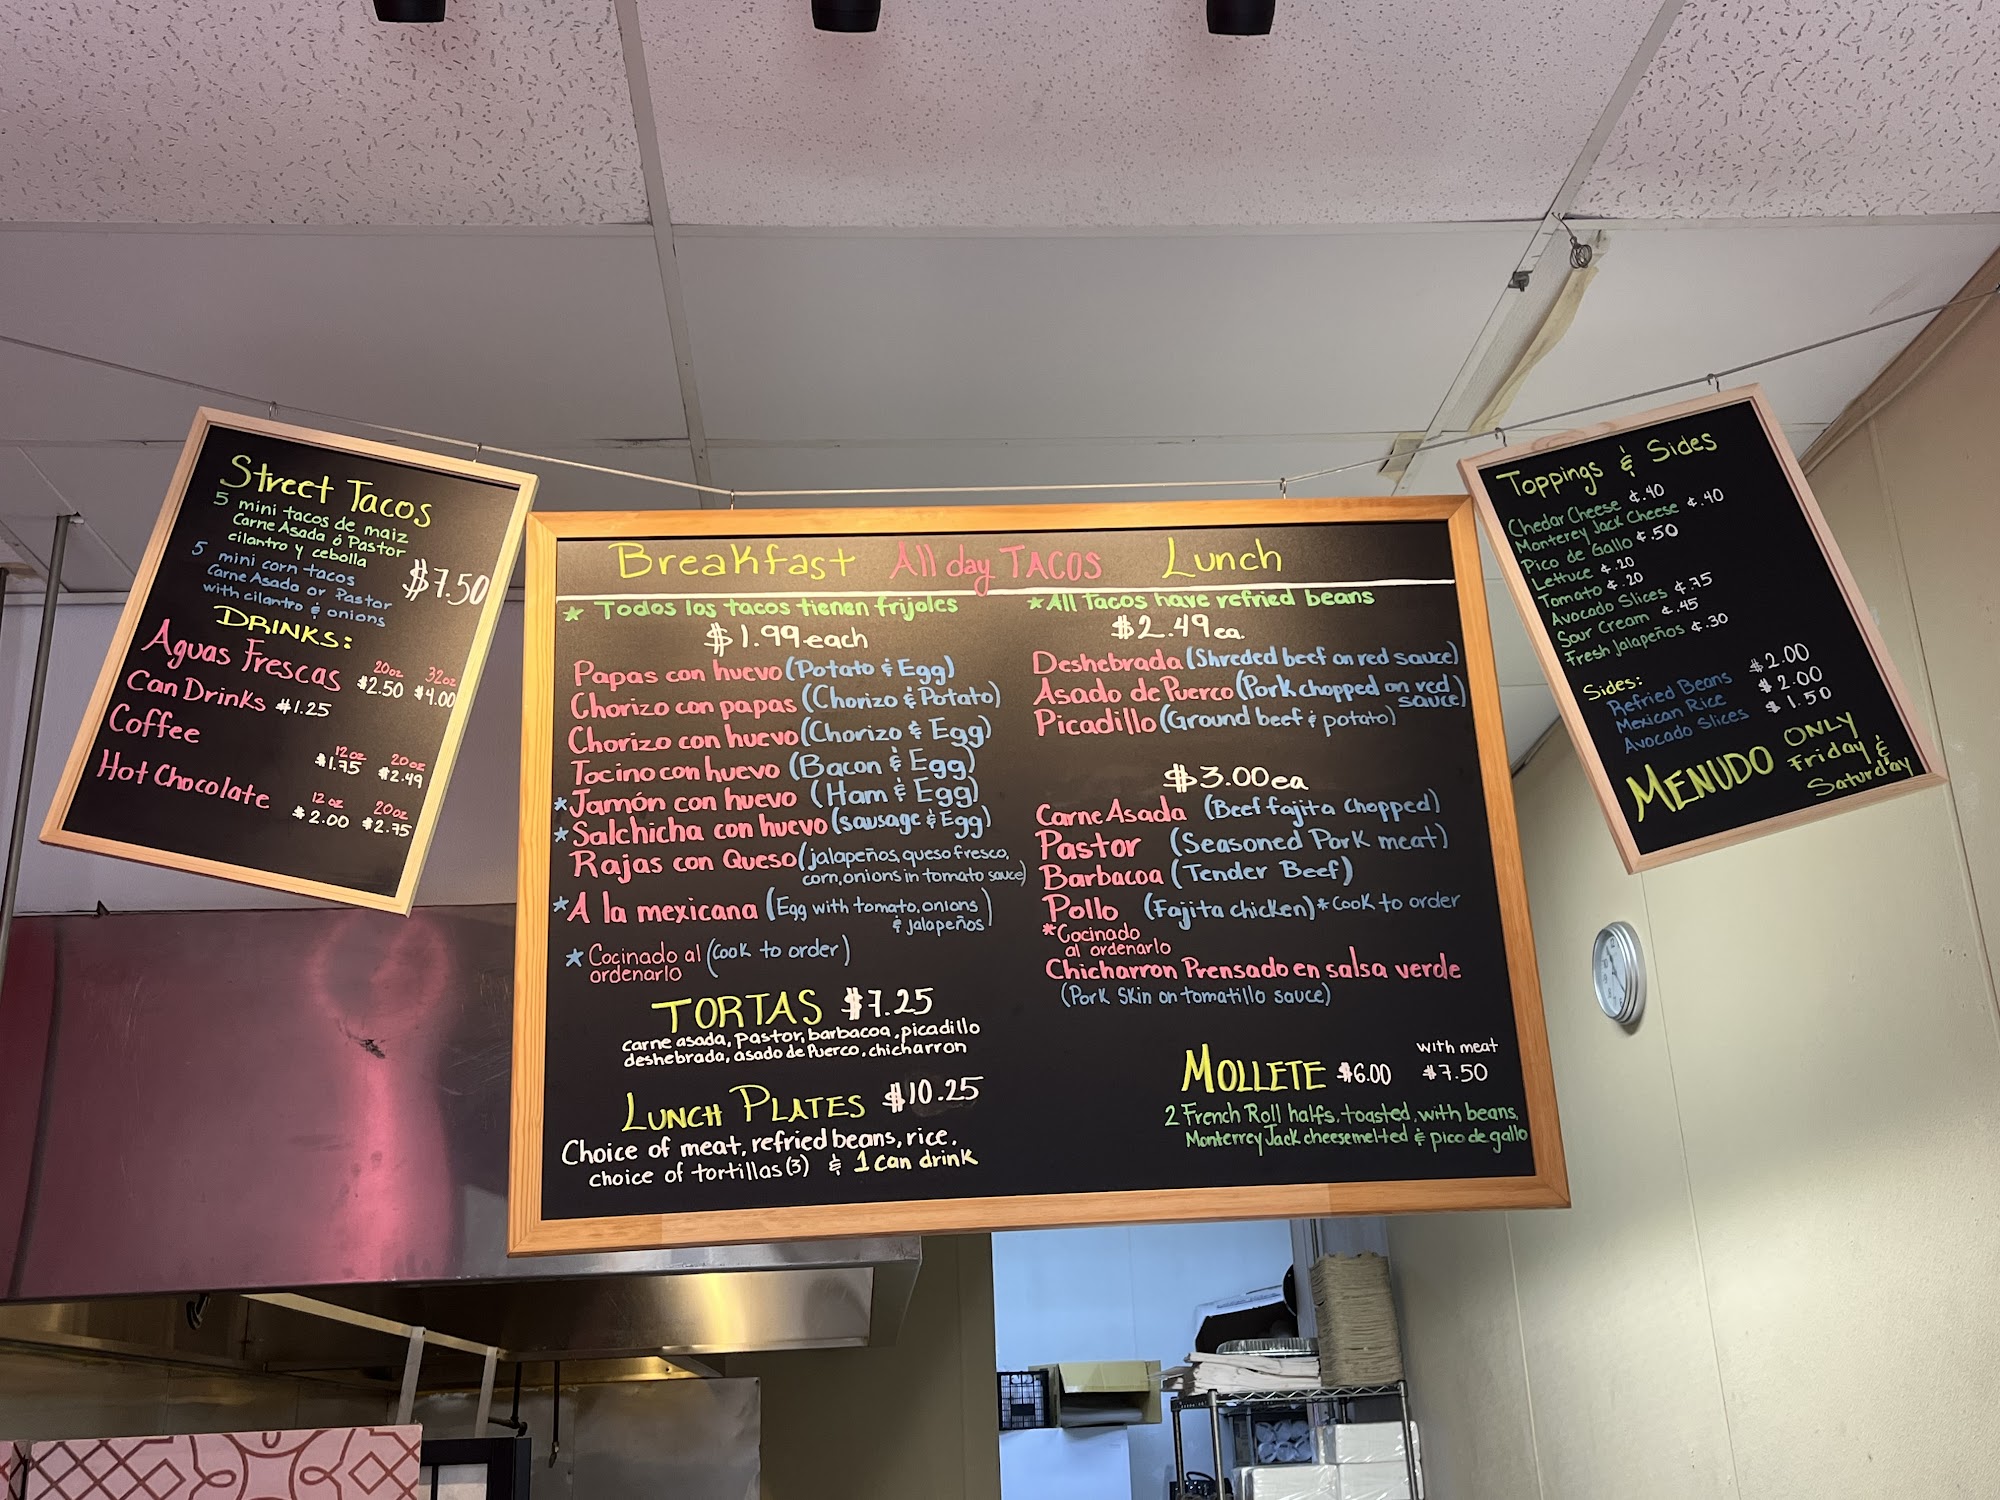 Street Tacos
5 mini tacos de maiz
Carne Asada ó Pastor
cilantro y cebolla
5 mini corn tacos
Carne Asada or Pastor
with cilantro & onions
$7.50
DRINKS:
20oz 32oz
Aguas Frescas $2.50 $4.00
Can Drinks $1.25
Coffee
12oz 20oz
$1.75 $2.49
Hot Chocolate
12oz 20oz
$2.00 $2.75
Breakfast All day TACOS Lunch
* Todos los tacos tienen frijoles
$1.99 each
Papas con huevo (Potato & Egg)
Chorizo con papas (Chorizo & Potato)
Chorizo con huevo (Chorizo & Egg)
Tocino con huevo (Bacon & Egg)
* Jamón con huevo (Ham & Egg)
* Salchicha con huevo (sausage & Egg)
Rajas con Queso (jalapeños, queso fresco,
corn, onions in tomato sauce)
* A la mexicana (Egg with tomato, onions
& jalapeños)
* Cocinado al (Cook to order)
ordenarlo
TORTAS $7.25
carne asada, Pastor, barbacoa, picadillo
deshebrada, asado de Puerco, chicharron
LUNCH PLATES $10.25
Choice of meat, refried beans, rice,
choice of tortillas (3) & 1 can drink
* All Tacos have refried beans
$2.49 ea.
Deshebrada (Shreded beef on red sauce)
Asado de Puerco (Pork chopped on red
sauce)
Picadillo (Ground beef & potato)
$3.00 ea
Carne Asada (Beef fajita chopped)
Pastor (Seasoned Pork meat)
Barbacoa (Tender Beef)
Pollo (Fajita chicken) * Cook to order
* Cocinado
al ordenarlo
Chicharron Prensado en salsa verde
(Pork Skin on tomatillo sauce)
with meat
MOLLETE $6.00 $7.50
2 French Roll halfs, toasted, with beans,
Monterrey Jack cheese melted & pico de gallo
Toppings & Sides
Chedar Cheese ¢.40
Monterey Jack Cheese ¢.40
Pico de Gallo ¢.50
Lettuce ¢.20
Tomato ¢.20
Avocado Slices ¢.75
Sour Cream ¢.45
Fresh Jalapeños ¢.30
Sides:
Refried Beans $2.00
Mexican Rice $2.00
Avocado Slices $1.50
MENUDO ONLY
Friday &
Saturday